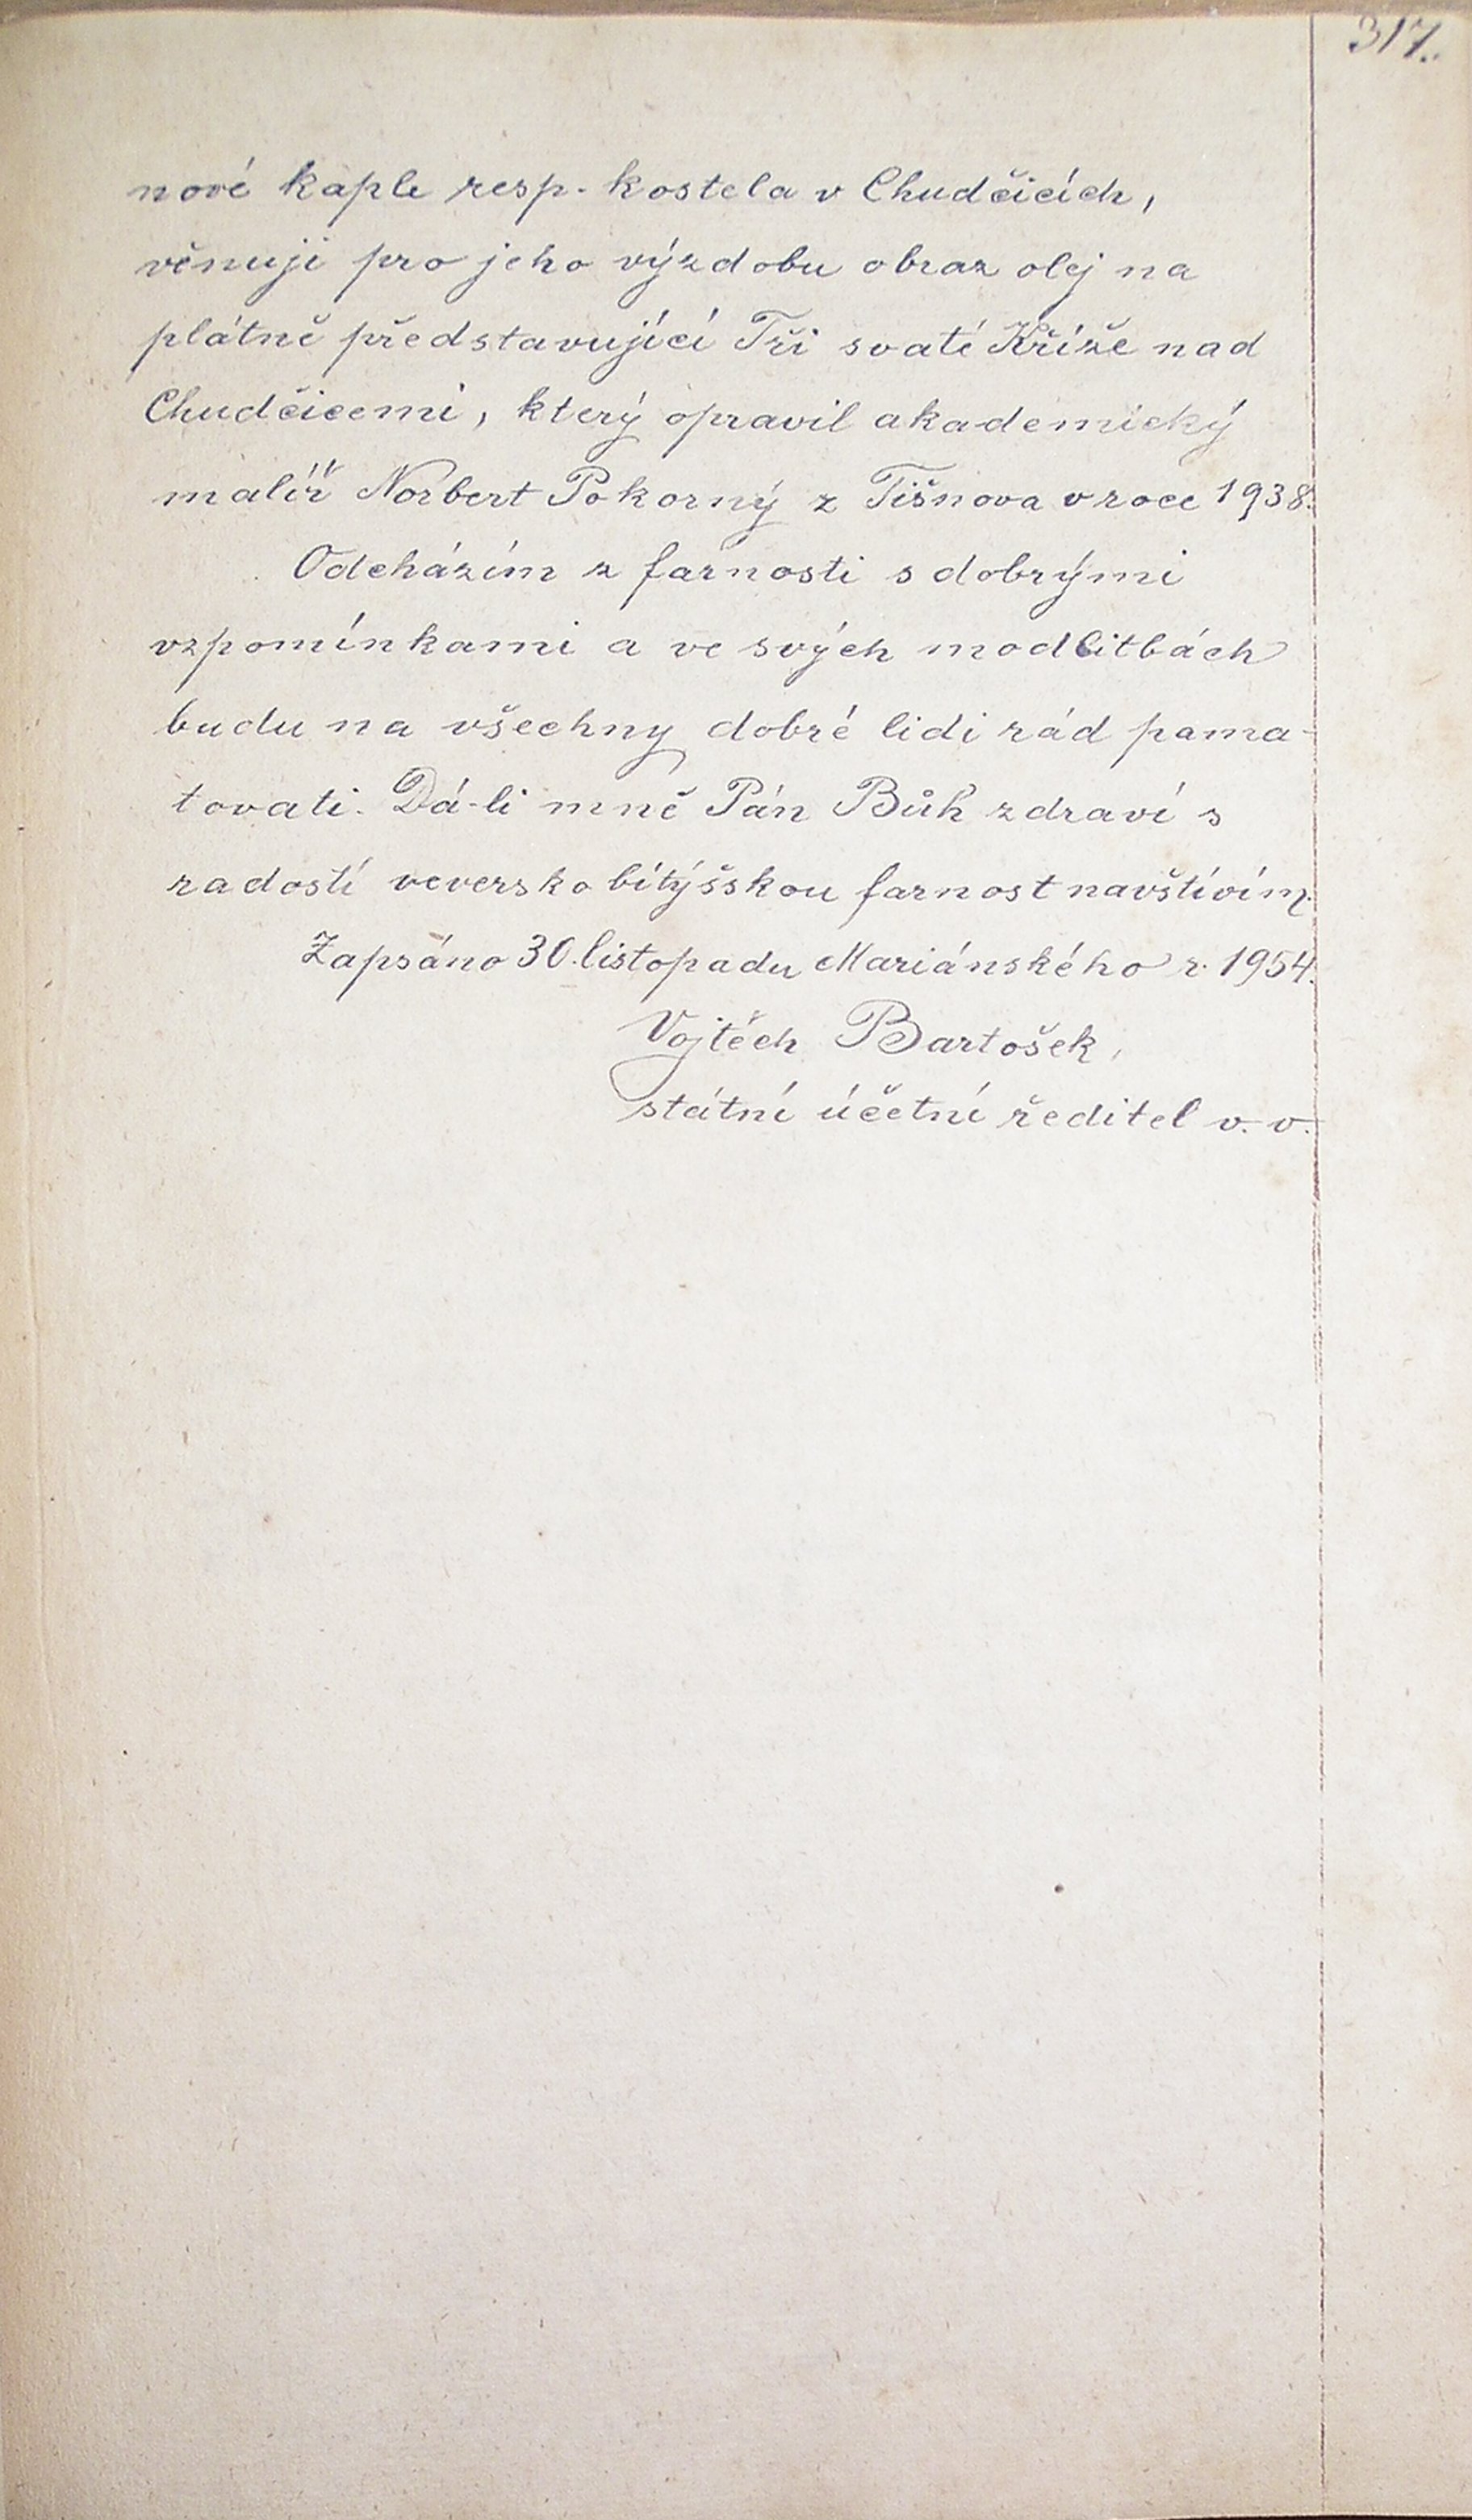 317.
nové kaple resp. kostela v Chudčicích,
věnuji pro jeho výzdobu obraz olej na
plátně představující Tři svaté Kříže nad
Chudčicemi, který opravil akademický
malíř Norbert Pokorný z Tišnova v roce 1938.
Odcházím z farnosti s dobrými
vzpomínkami a ve svých modlitbách
budu na všechny dobré lidi rád pama-
tovati. Dá-li mně Pán Bůh zdraví s
radostí veversko bítýšskou farnost navštívím.
Zapsáno 30. listopadu Mariánského r. 1954.
Vojtěch Bartošek,
státní účetní ředitel v. v.